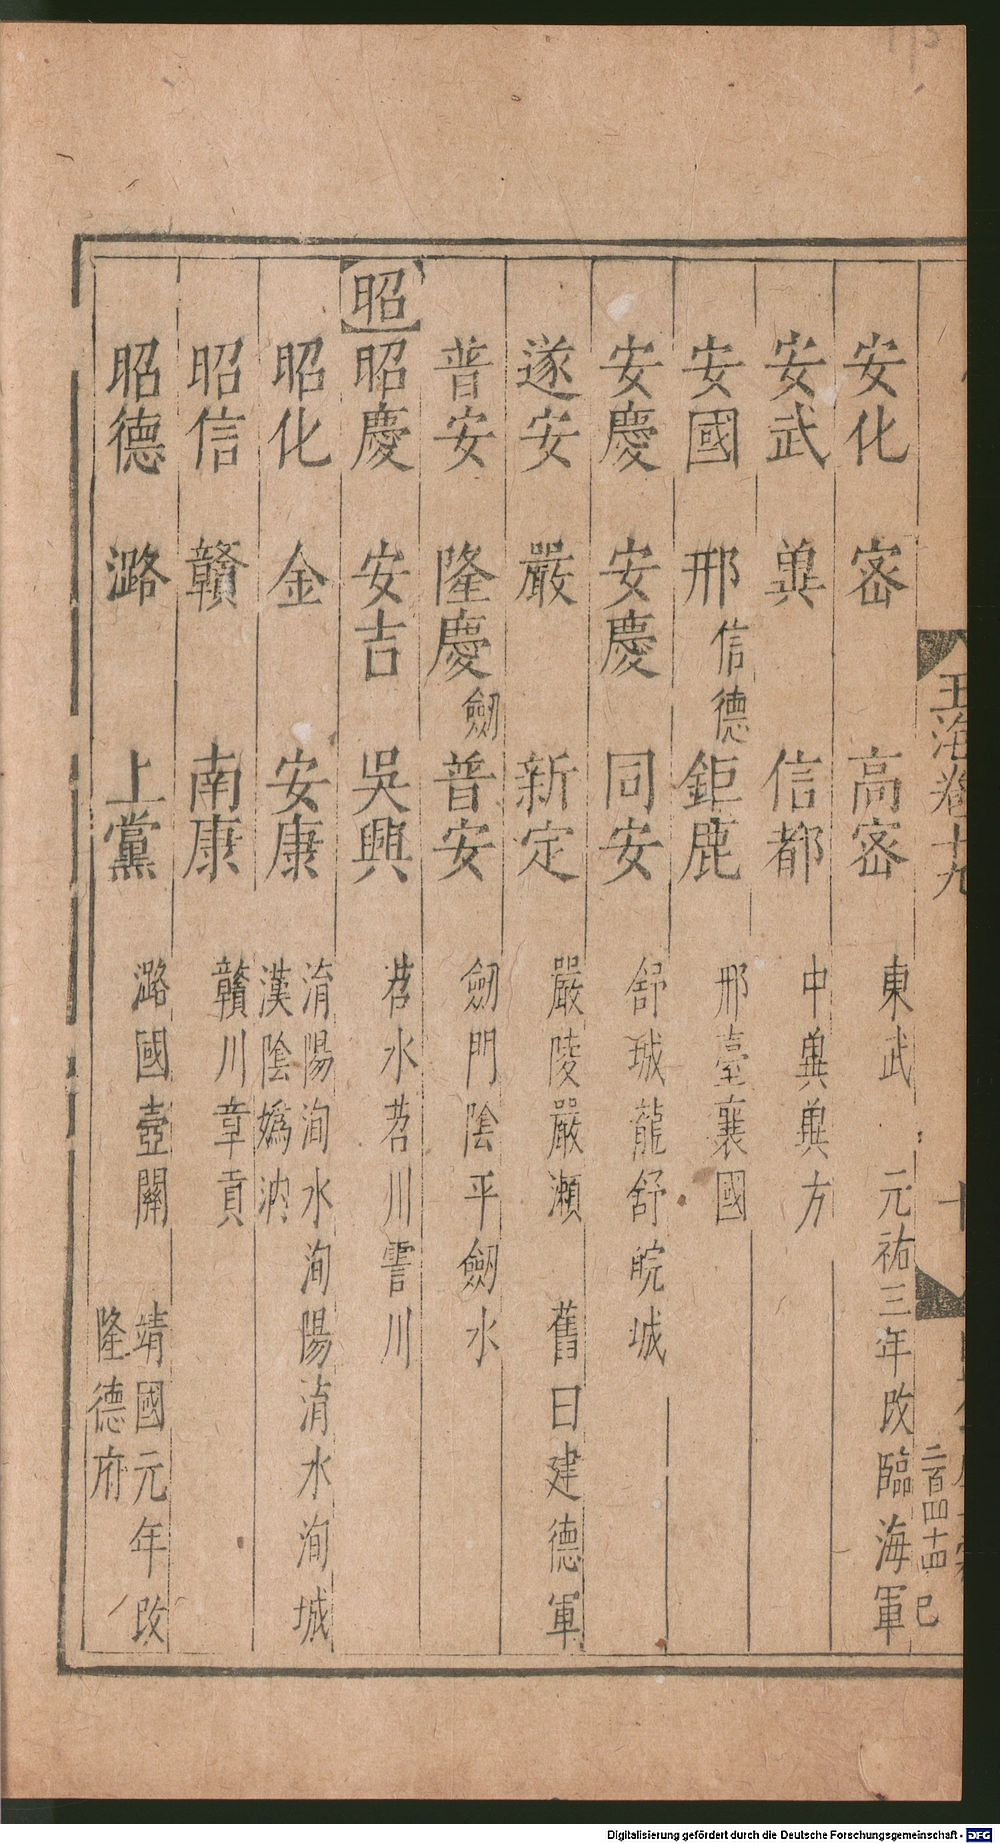 玉海卷十九
二百四十四 已
安化 密 高密 東武 元祐三年改臨海軍
安武 兾 信都 中兾兾方
安國 邢信德 鉅鹿 邢臺襄國
安慶 安慶 同安 舒城龍舒皖城
遂安 嚴 新定 嚴陵嚴瀨 舊曰建德軍
普安 隆慶劒 普安 劒門陰平劒水
昭 昭慶 安吉 吳興 苕水苕川霅川
昭化 金 安康 洵水洵陽淯水洵城
漢陰嬀汭
昭信 贛 南康 贛川章貢
昭德 潞 上黨 潞國壺關 靖國元年改
隆德府
Digitalisierung gefördert durch die Deutsche Forschungsgemeinschaft - DFG